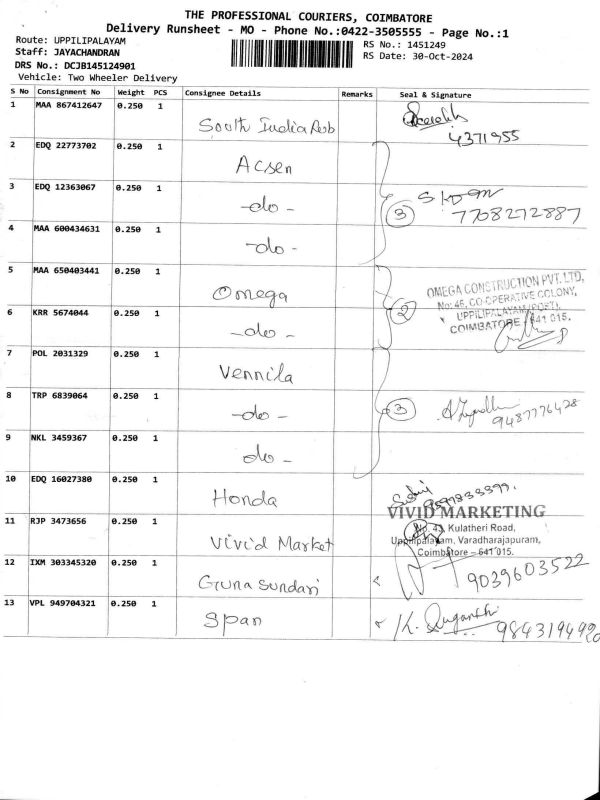 THE PROFESSIONAL COURIERS, COIMBATORE
Delivery Runsheet - MO - Phone No.:0422-3505555 - Page No.:1
Route: UPPILIPALAYAM
RS No.: 1451249
Staff: JAYACHANDRAN
RS Date: 30-Oct-2024
DRS No.: DCJB145124901
Vehicle: Two Wheeler Delivery
S No Consignment No Weight PCS Consignee Details Remarks Seal & Signature
1 MAA 867412647 0.250 1 South India
4371955
2 EDQ 22773702 0.250 1 Acsen
3 EDQ 12363067 0.250 1 -do- 3
7708272887
4 MAA 600434631 0.250 1 -do-
5 MAA 650403441 0.250 1 Omega
OMEGA CONSTRUCTION PVT. LTD,
No: 46, CO-OPERATIVE COLONY,
UPPILIPALAYAM (POST),
COIMBATORE - 641 015.
6 KRR 5674044 0.250 1 -do- 2
7 POL 2031329 0.250 1 Vennila
8 TRP 6839064 0.250 1 -do- 3
9487776428
9 NKL 3459367 0.250 1 do-
10 EDQ 16027380 0.250 1 Honda
VIVID MARKETING
Kulatheri Road,
Uppilipalayam, Varadharajapuram,
Coimbatore - 641 015.
11 RJP 3473656 0.250 1 Vivid Market
12 IXM 303345320 0.250 1 Guna Sundari
9039603522
13 VPL 949704321 0.250 1 Span
K. Suganthi
9843194920